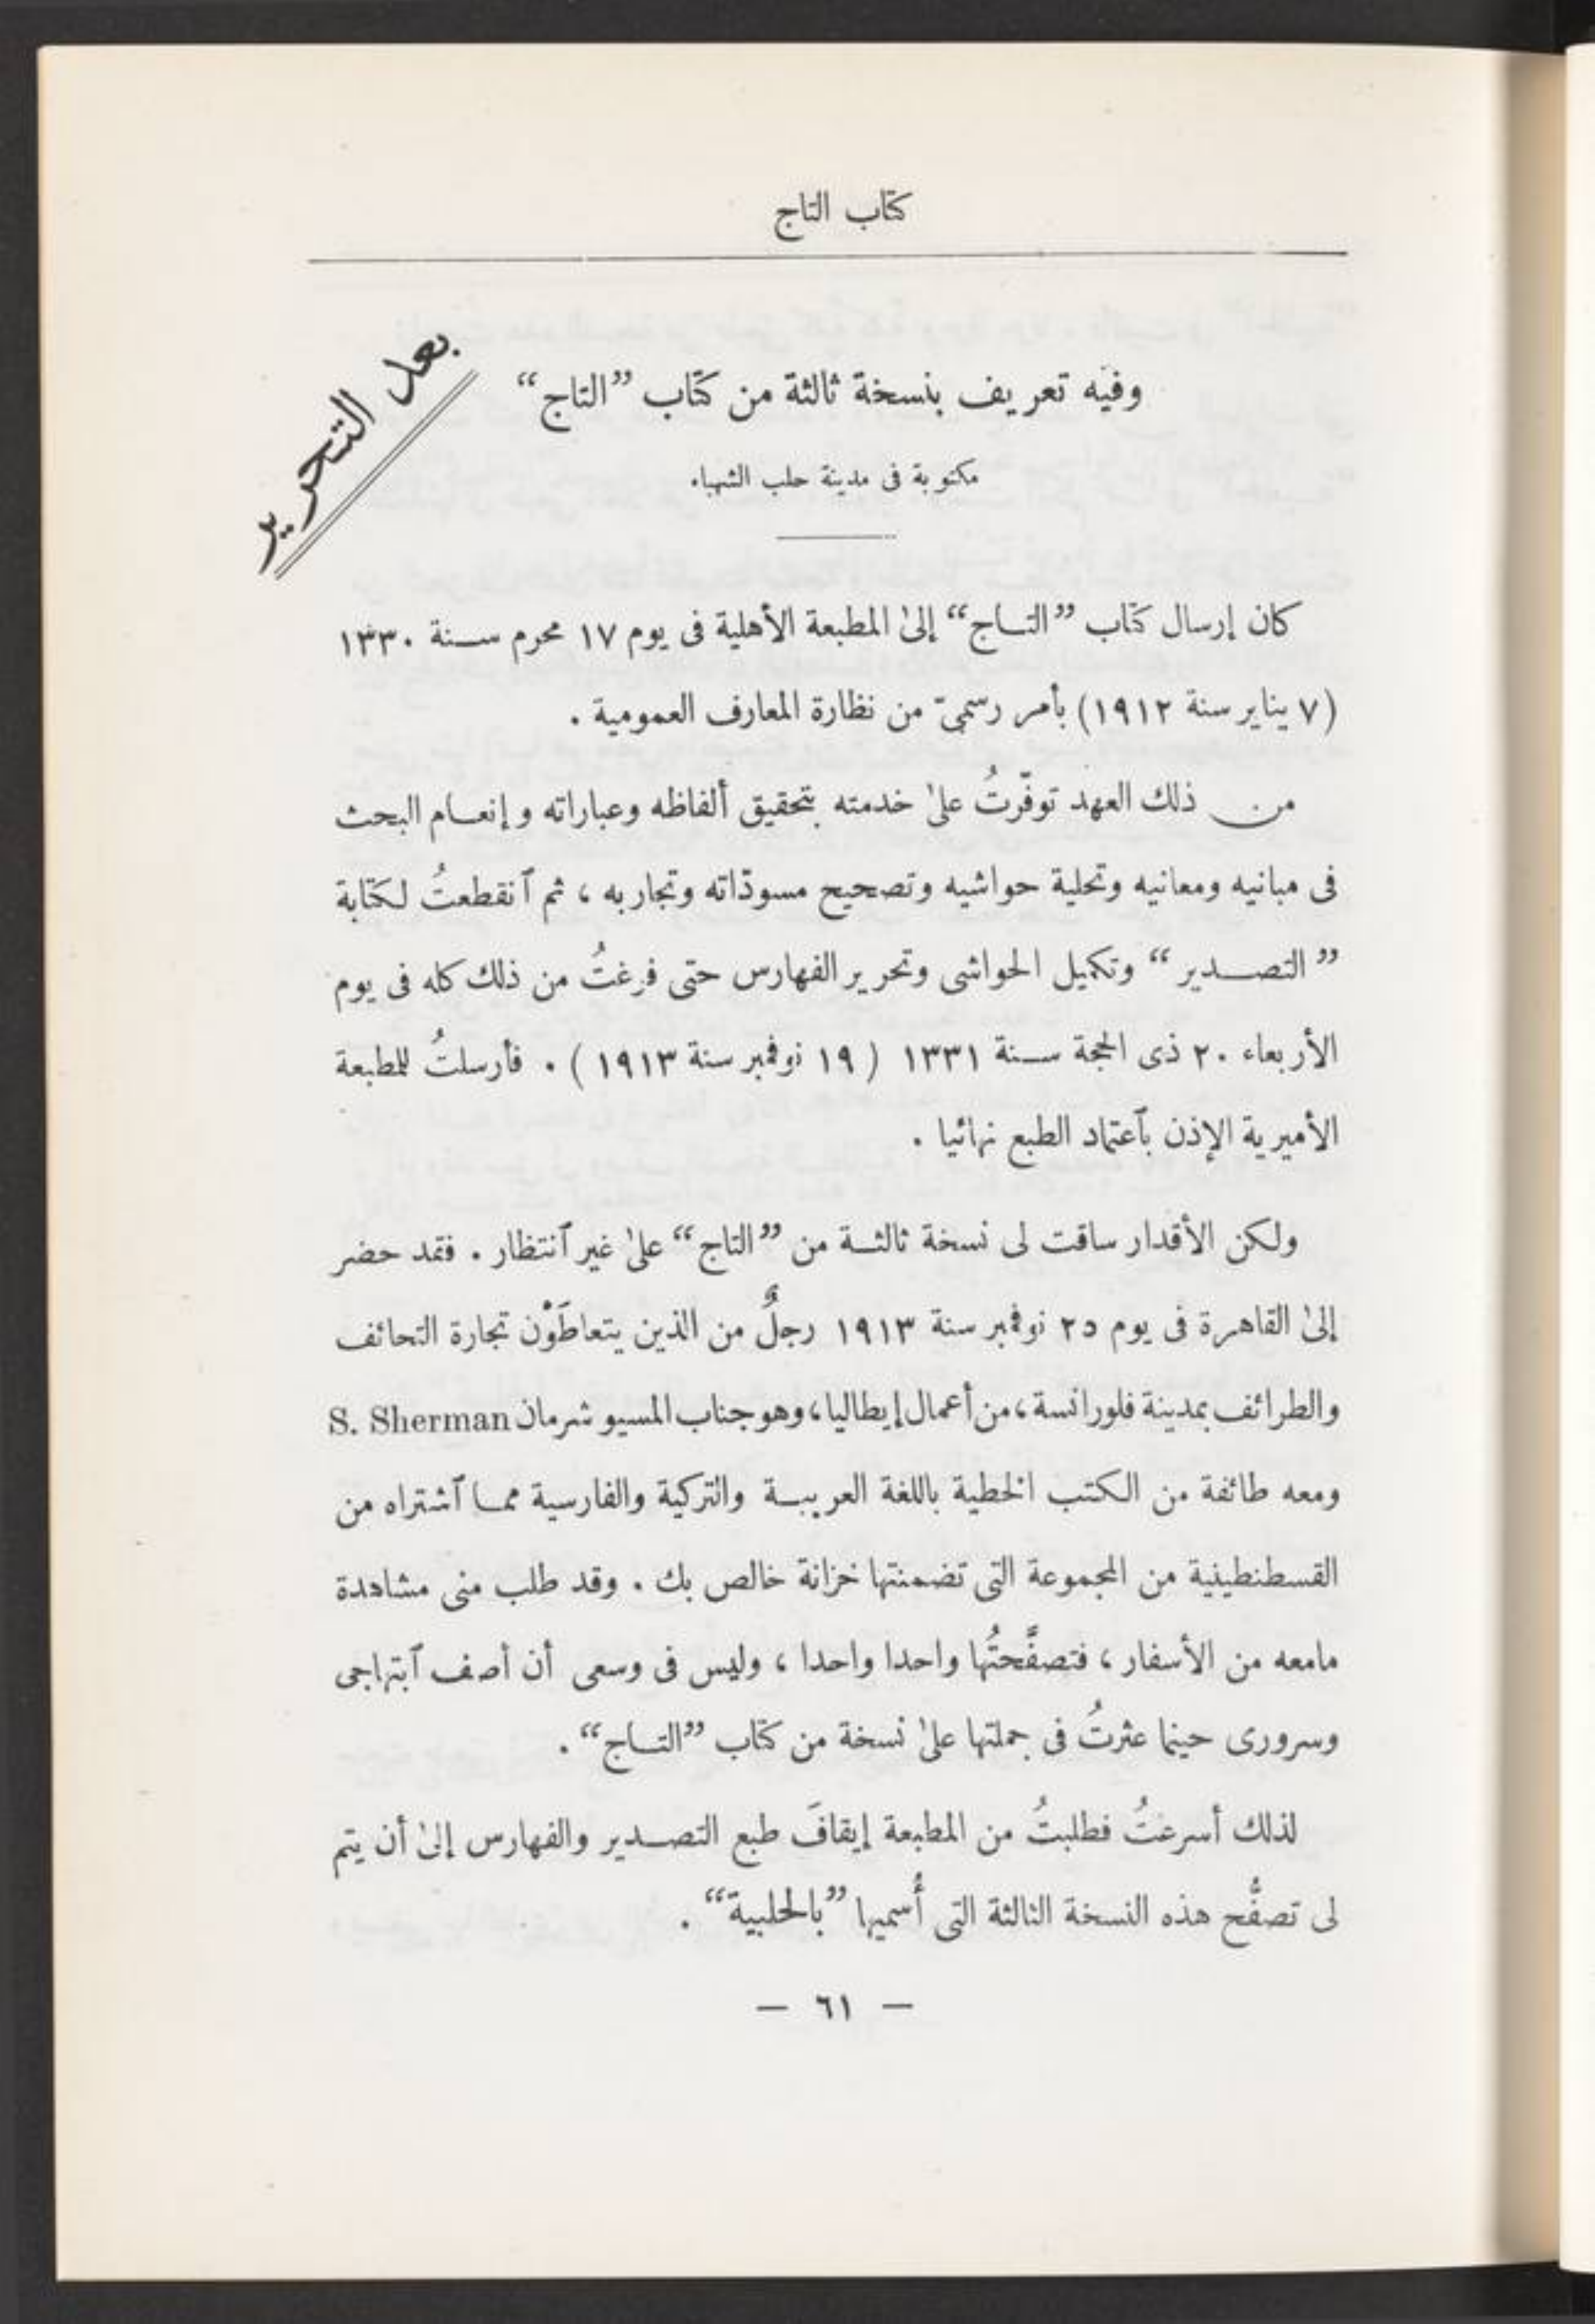 كتاب التاج
بعد التحرير
وفيه تعريف بنسخة ثالثة من كتاب "التاج"
مكتوبة فى مدينة حلب الشهباء.
كان إرسال كتاب "التاج" إلىٰ المطبعة الأهلية فى يوم ١٧ محرم سنة ١٣٣٠
(٧ يناير سنة ١٩١٢) بأمر رسمىّ من نظارة المعارف العمومية .
من ذلك العهد توفّرتُ علىٰ خدمته بتحقيق ألفاظه وعباراته وإنعام البحث
فى مبانيه ومعانيه وتحلية حواشيه وتصحيح مسودّاته وتجاربه ، ثم ٱنقطعتُ لكتابة
"التصدير" وتكميل الحواشى وتحرير الفهارس حتى فرغتُ من ذلك كله فى يوم
الأربعاء ٢٠ ذى الحجة سنة ١٣٣١ ( ١٩ نوفمبر سنة ١٩١٣ ) . فأرسلتُ للمطبعة
الأميرية الإذن بٱعتماد الطبع نهائيا .
ولكن الأقدار ساقت لى نسخة ثالثة من "التاج" علىٰ غير ٱنتظار . فقد حضر
إلىٰ القاهرة فى يوم ٢٥ نوفمبر سنة ١٩١٣ رجلٌ من الذين يتعاطَوْن تجارة التحائف
والطرائف بمدينة فلورانسة ، من أعمال إيطاليا ، وهو جناب المسيو شرمان S. Sherman
ومعه طائفة من الكتب الخطية باللغة العربية والتركية والفارسية مما ٱشتراه من
القسطنطينية من المجموعة التى تضمنتها خزانة خالص بك . وقد طلب منى مشاهدة
مامعه من الأسفار ، فتصفَّحتُها واحدا واحدا ، وليس فى وسعى أن أصف ٱبتهاجى
وسرورى حينما عثرتُ فى جملتها علىٰ نسخة من كتاب "التاج" .
لذلك أسرعتُ فطلبتُ من المطبعة إيقافَ طبع التصدير والفهارس إلىٰ أن يتم
لى تصفُّح هذه النسخة الثالثة التى أُسميها "بالحلبية" .
— ٦١ —